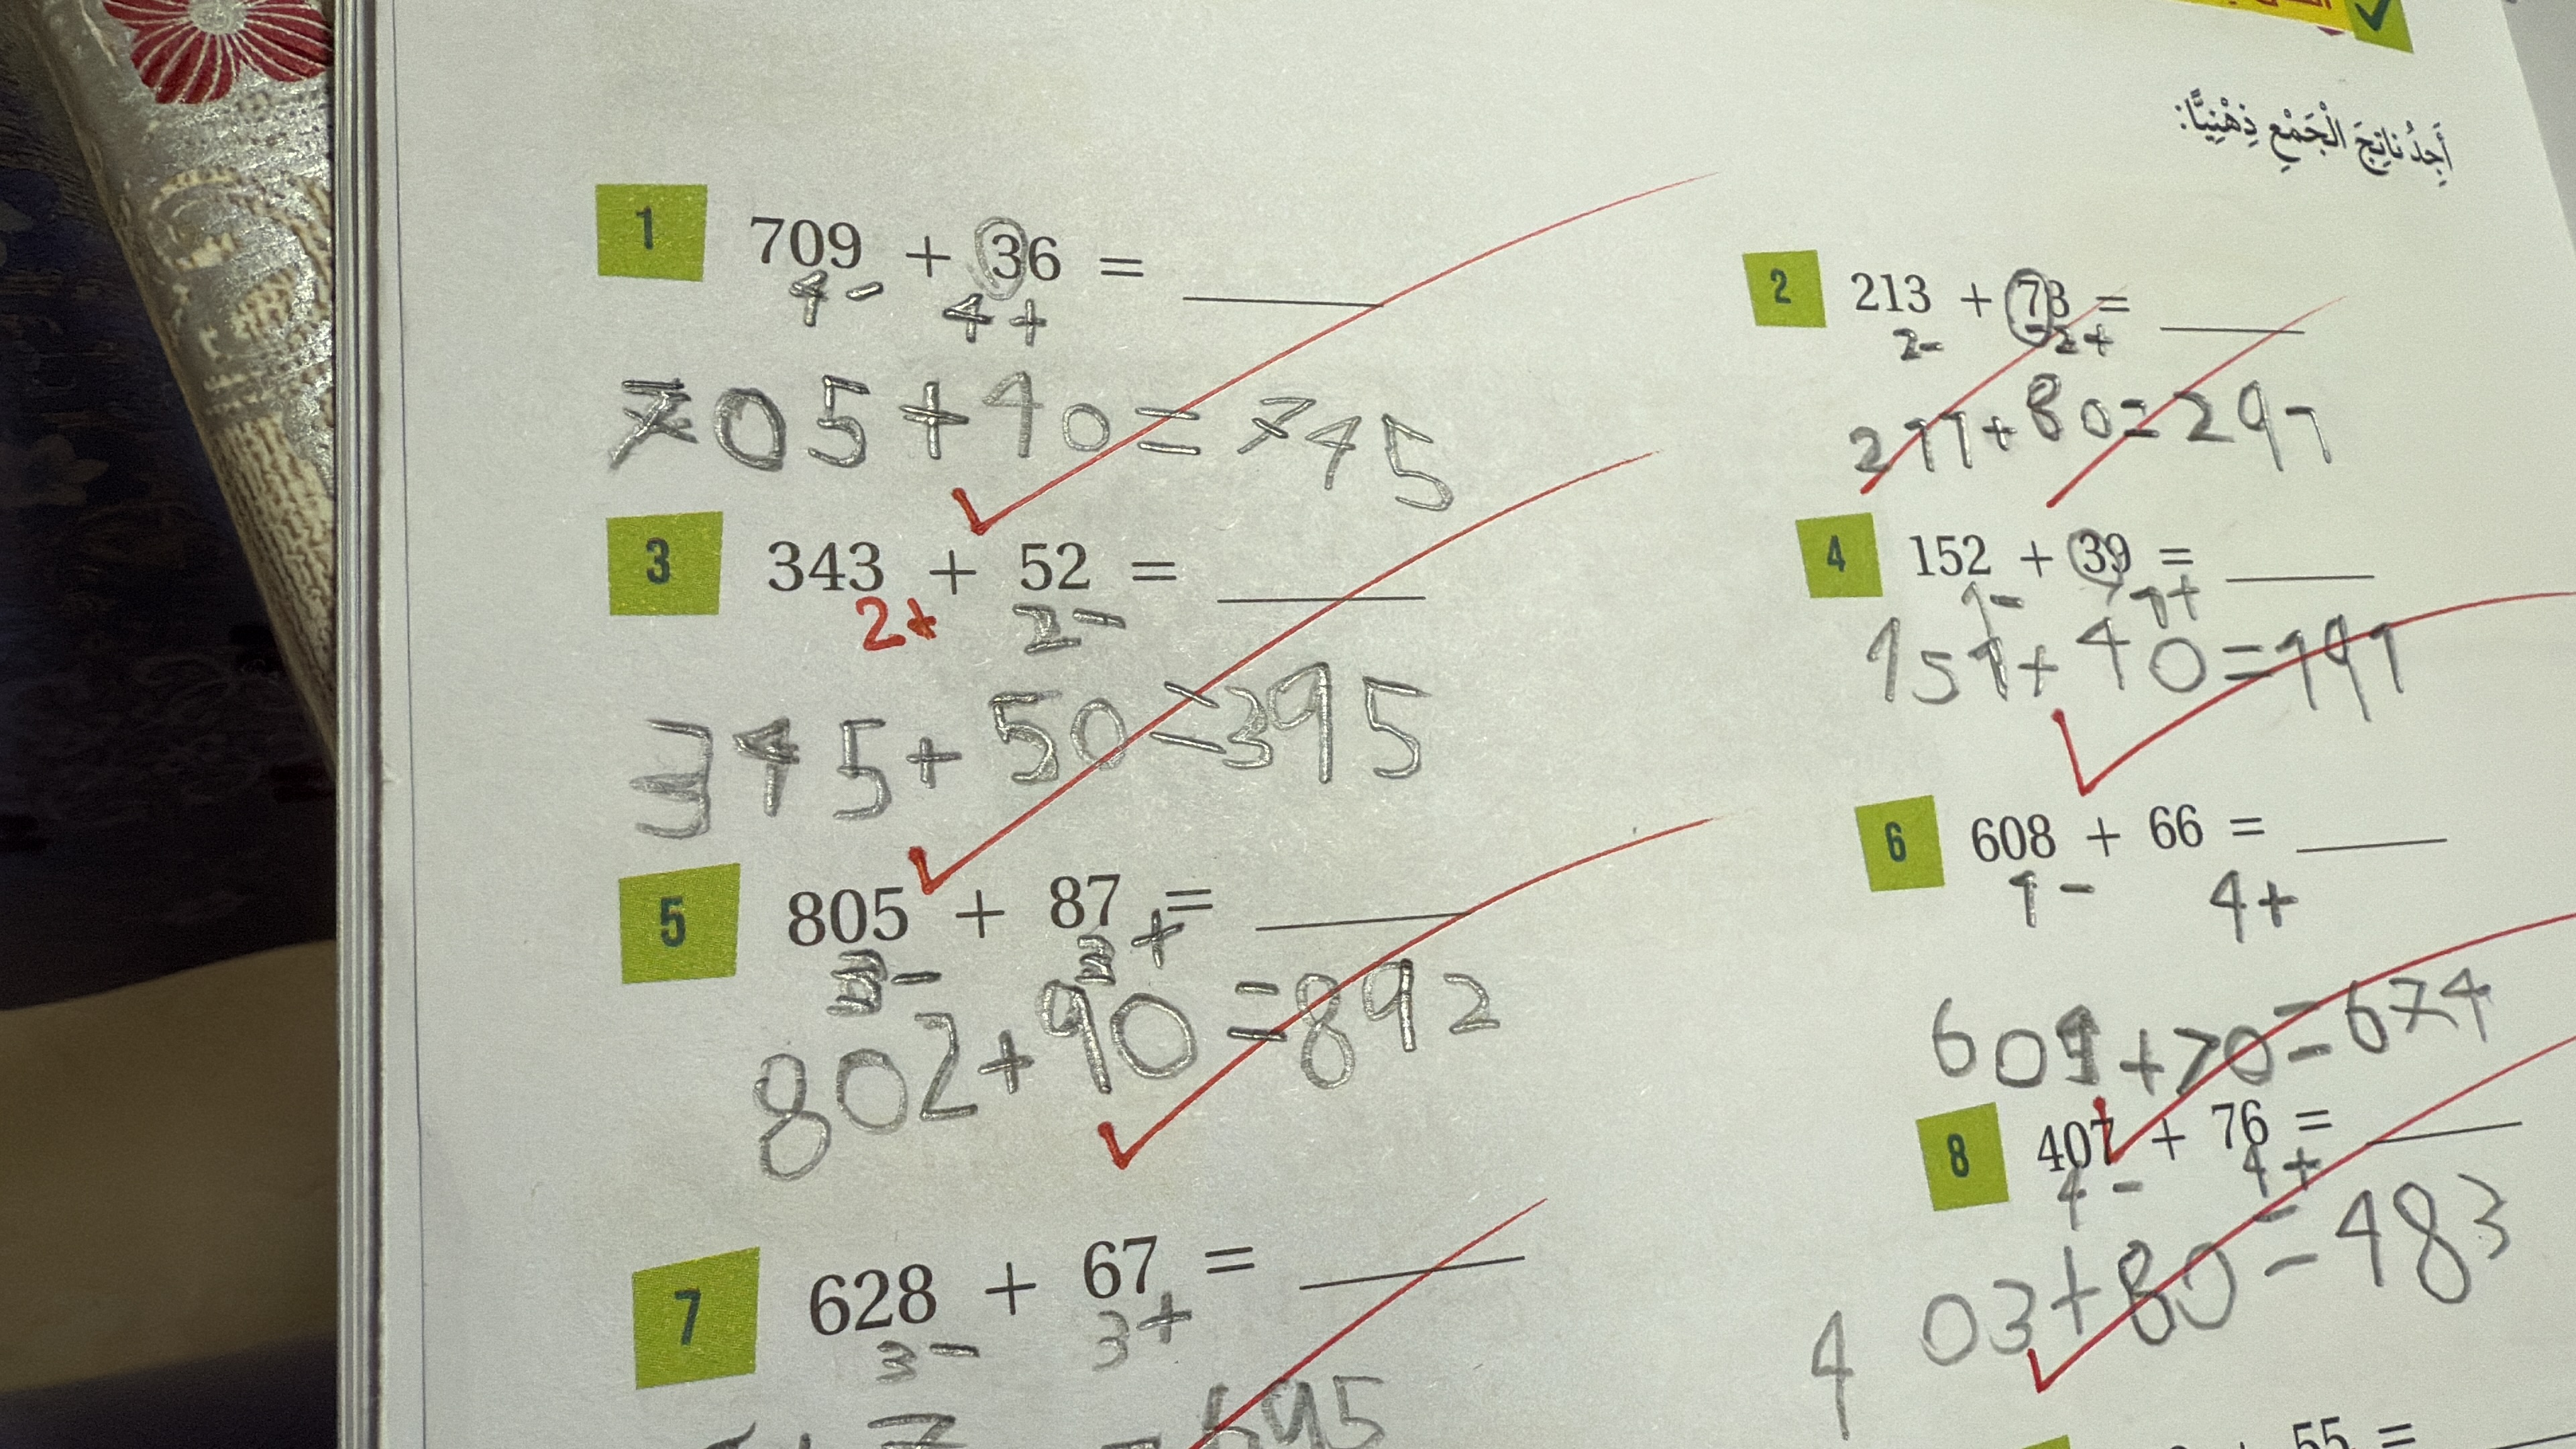 أَجِدُ ناتِجَ الْجَمْعِ ذِهْنِيًّا:
1 709 + 36 = ____
4- 4+
705+40=745
2 213 + 73 = ____
2- 2+
211+80=291
3 343 + 52 = ____
2+ 2-
345+50=395
4 152 + 39 = ____
1- 1+
151+40=191
5 805 + 87 = ____
3- 3+
802+90=892
6 608 + 66 = ____
4+
+70=674
7 628 + 67 = ____
3- 3+
695
8 407 + 76 = ____
4- 4+
403+80=483
+ 55 =